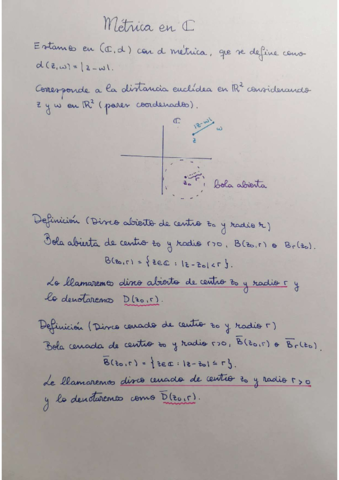 Métrica en ℂ
Estamos en (ℂ,d) con d métrica, que se define como
d(z,w)=|z-w|.
Corresponde a la distancia euclídea en ℝ² considerando
z y w en ℝ² (pares coordenados).
ℂ
|z-w|
z
w
z₀
r
bola abierta
Definición (Disco abierto de centro z₀ y radio r)
Bola abierta de centro z₀ y radio r>0, B(z₀,r) o Br(z₀).
B(z₀,r) = {z∈ℂ : |z-z₀|<r}.
Lo llamaremos disco abierto de centro z₀ y radio r y
lo denotaremos D(z₀,r).
Definición (Disco cerrado de centro z₀ y radio r)
Bola cerrada de centro z₀ y radio r>0, B̅(z₀,r) o B̅r(z₀).
B̅(z₀,r) = {z∈ℂ : |z-z₀|≤r}.
Le llamaremos disco cerrado de centro z₀ y radio r>0
y lo denotaremos como D̅(z₀,r).